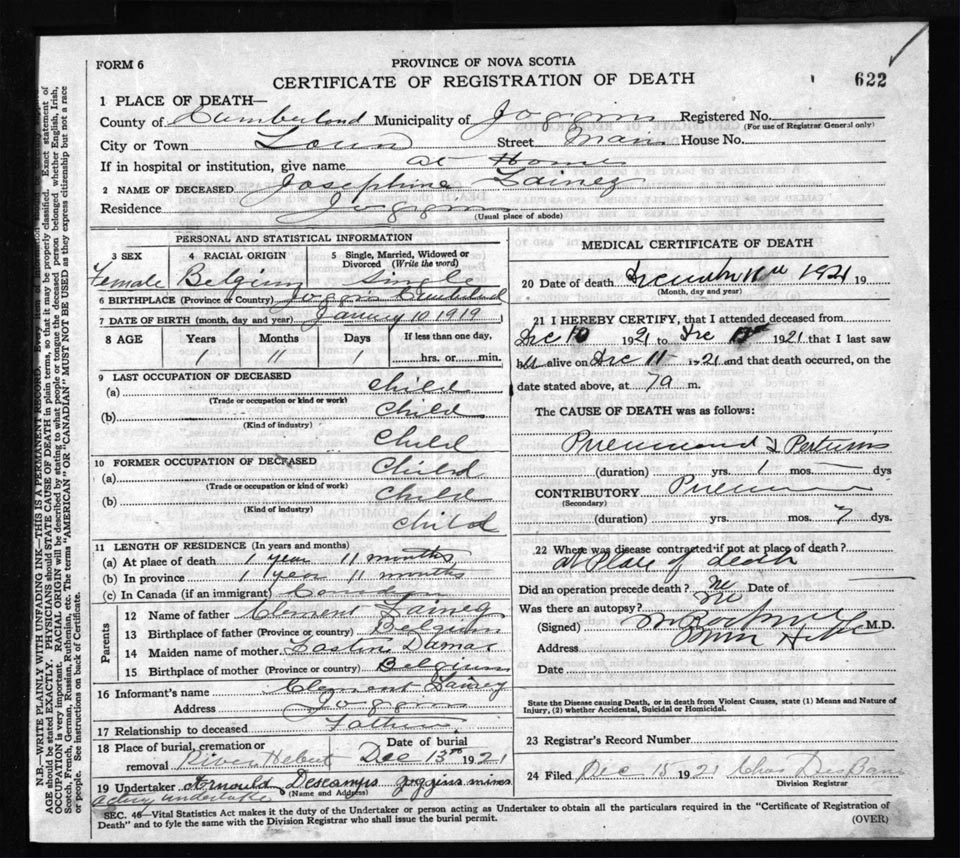 FORM 6
PROVINCE OF NOVA SCOTIA
CERTIFICATE OF REGISTRATION OF DEATH
622
1 PLACE OF DEATH—
County of Cumberland Municipality of Joggins Registered No.
(For use of Registrar General only)
City or Town Town Street Main House No.
If in hospital or institution, give name at Home
2 NAME OF DECEASED Josephine Lainey
Residence Joggins
(Usual place of abode)
PERSONAL AND STATISTICAL INFORMATION
3 SEX 4 RACIAL ORIGIN 5 Single, Married, Widowed or Divorced (Write the word)
Female Belgium Single
6 BIRTHPLACE (Province or Country) Joggins Cumberland
7 DATE OF BIRTH (month, day and year) January 10 1919
8 AGE Years Months Days If less than one day,
1 11 1 hrs. or min.
9 LAST OCCUPATION OF DECEASED
(a) child
(Trade or occupation or kind or work)
(b) child
(Kind of industry)
child
10 FORMER OCCUPATION OF DECEASED
(a) child
(Trade or occupation or kind of work)
(b) child
(Kind of industry)
child
11 LENGTH OF RESIDENCE (In years and months)
(a) At place of death 1 year 11 months
(b) In province 1 year 11 months
(c) In Canada (if an immigrant)
Parents
12 Name of father Clement Lainey
13 Birthplace of father (Province or country) Belgium
14 Maiden name of mother Dumas
15 Birthplace of mother (Province or country) Belgium
16 Informant's name Clement Lainey
Address Joggins
17 Relationship to deceased Father
18 Place of burial, cremation or removal River Hebert Date of burial Dec 13th 1921
19 Undertaker Arnould Descamps Joggins mines
(Name and Address)
acting undertaker
MEDICAL CERTIFICATE OF DEATH
20 Date of death December 11th 1921 19
(Month, day and year)
21 I HEREBY CERTIFY, that I attended deceased from
Dec 10 1921 to Dec 1921 that I last saw
alive on Dec 11 1921 and that death occurred, on the
date stated above, at 7a m.
The CAUSE OF DEATH was as follows:
Pneumonia & Pertussis
(duration) yrs. 1 mos. dys
CONTRIBUTORY
(Secondary)
(duration) yrs. mos. 7 dys.
22 Where was disease contracted if not at place of death?
at Place of death
Did an operation precede death? no Date of
Was there an autopsy? no
(Signed) M.D.
Address
Date
State the Disease causing Death, or in death from Violent Causes, state (1) Means and Nature of Injury, (2) whether Accidental, Suicidal or Homicidal.
23 Registrar's Record Number
24 Filed Dec 15 1921 Chas
Division Registrar
SEC. 46—Vital Statistics Act makes it the duty of the Undertaker or person acting as Undertaker to obtain all the particulars required in the "Certificate of Registration of
Death" and to fyle the same with the Division Registrar who shall issue the burial permit.
(OVER)
N.B.—WRITE PLAINLY WITH UNFADING INK—THIS IS A PERMANENT RECORD. Every item of information
AGE should be stated EXACTLY. PHYSICIANS should STATE CAUSE OF DEATH in plain terms, so that it may be properly classified. Exact statement of
OCCUPATION is very important. RACIAL ORIGIN will be described by stating to what people or tongue the deceased person belonged whether English, Irish,
Scotch, French, German, Russian, Ruthenian, etc. The terms "AMERICAN" OR "CANADIAN" MUST NOT BE USED as they express citizenship but not a race
or people. See instructions on back of Certificate.